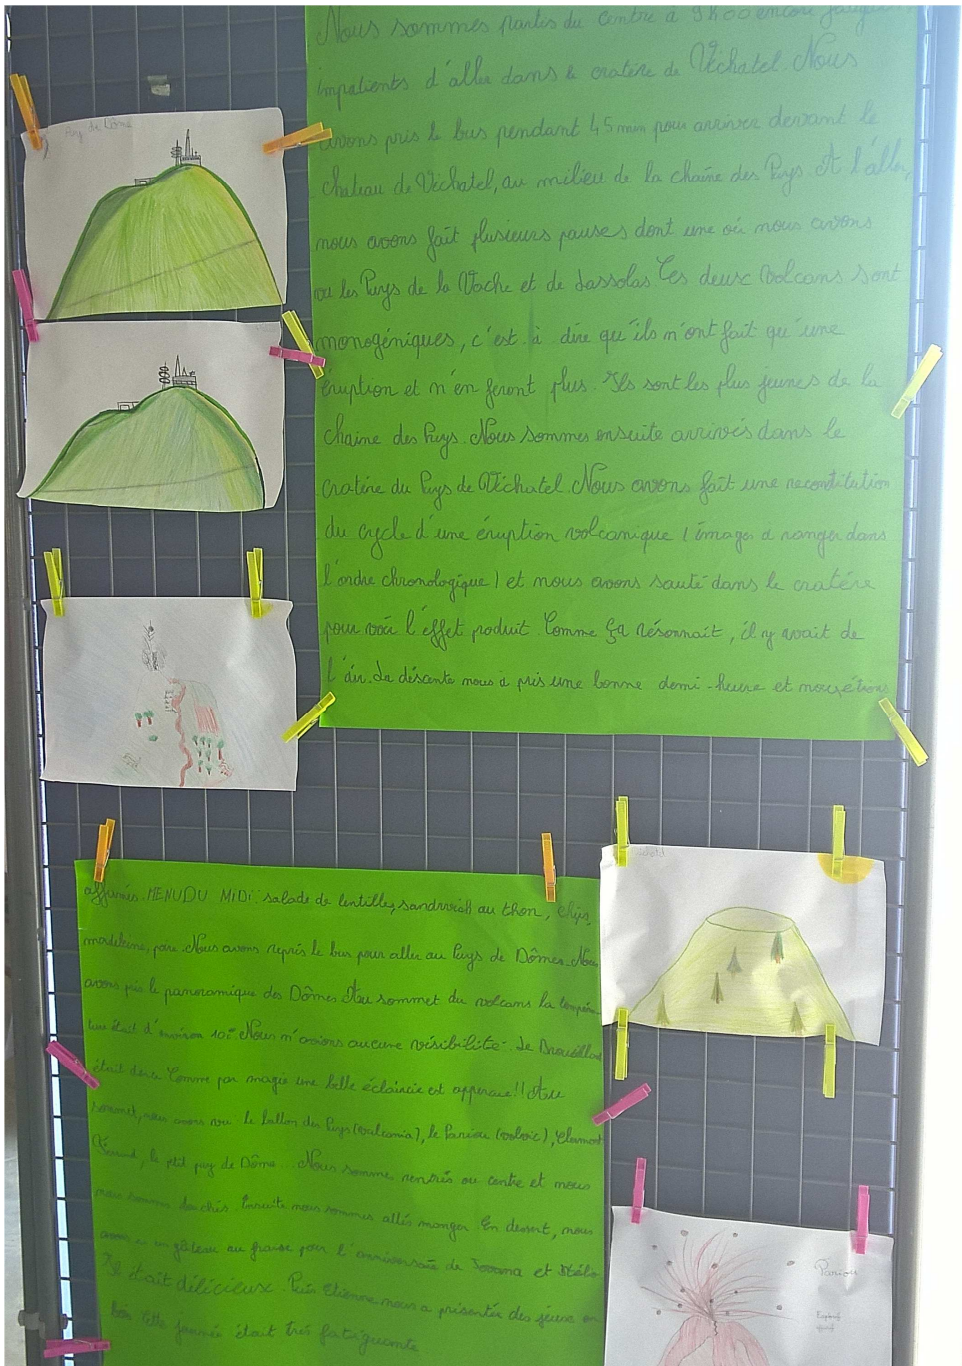 Puy de Dôme
Nous sommes partis du centre à 9h00 encore
impatients d'aller dans le cratère de Véchatel. Nous
avons pris le bus pendant 45 min pour arriver devant le
chateau de Véchatel, au milieu de la chaîne des Puys. A l'aller,
nous avons fait plusieurs pauses dont une où nous avons
vu les Puys de la Vache et de Lassolas. Ces deux volcans sont
monogéniques, c'est à dire qu'ils n'ont fait qu'une
éruption et n'en feront plus. Ils sont les plus jeunes de la
chaine des Puys. Nous sommes ensuite arrivés dans le
cratère du Puys de Véchatel. Nous avons fait une reconstitution
du cycle d'une éruption volcanique (images à ranger dans
l'ordre chronologique) et nous avons sauté dans le cratère
pour voir l'effet produit. Comme ça résonnait, il y avait de
l'air. La déscente nous à pris une bonne demi-heure et nous étions
affamés. MENU DU MiDi: salade de lentilles, sandwich au thon, chips,
madeleine, poire. Nous avons repris le bus pour aller au Puys de Dômes. Nous
avons pris le panoramique des Dômes. Au sommet du volcans la tempéra-
ture était d'environ 10°. Nous n'avions aucune visibilité. Le Brouillard
était dense. Comme par magie une belle éclaircie est apparue!! Au
sommet, nous avons vu le ballon des Puys (vulcania), le Pariou (volvic), Clermont
Ferrand, le ptit puy de Dôme... Nous sommes rentrés au centre et nous
nous sommes douchés. Ensuite nous sommes allés manger. En dessert, nous
avons un gâteau au fraise pour l'anniversaire de et
Il était délicieux. Puis Etienne nous a présentés des jeux en
bois. Cette journée était très fatiguante
Pariou